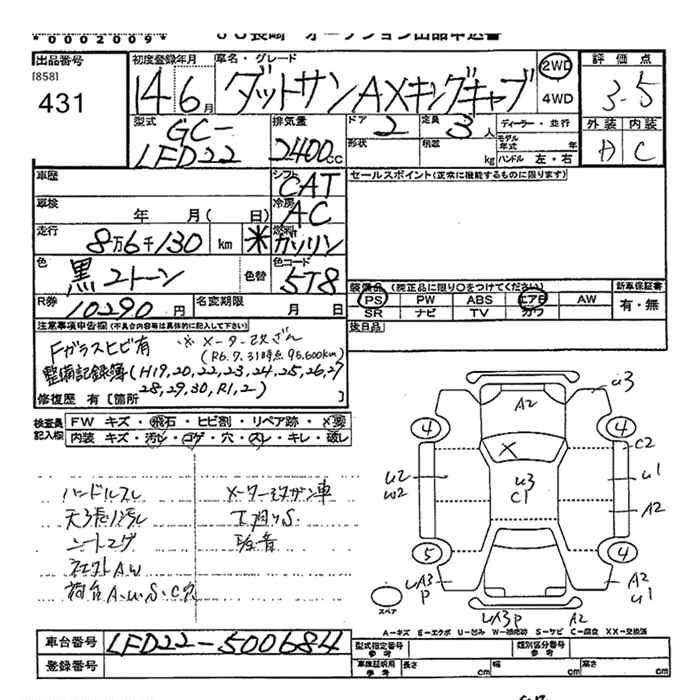 *0002009*
ＪＵ長崎 オークション出品申込書
出品番号 [858] 431
初度登録年月 14年6月
車名・グレード ダットサン AXキングキャブ
2WD 4WD
評価点 3.5
外装 内装
A C
型式 GC-LFD22
排気量 2400cc
ドア 2 定員 3人
形状 積載 kg
ディーラー・並行
モデル年式 年
ハンドル 左・右
車歴
シフト CAT
セールスポイント(正常に機能するものに限ります)
車検 年 月( 日)
冷房 AC
走行 8万6千130 km ※
燃料 ガソリン
色 黒 2トーン 色替
色コード 5T8
装備品 (純正品に限り○をつけてください)
PS PW ABS エアB AW
SR ナビ TV カワ
新車保証書 有・無
R券 10290円
名変期限 月 日
後日品
注意事項申告欄(不具合内容等は具体的に記入して下さい)
Fガラスヒビ有 ※メーター改ざん
(R6.7.31時点 95,600km)
整備記録簿(H19,20,22,23,24,25,26,27
28,29,30,R1,2)
修復歴 有〔箇所 〕
検査員記入欄
FW キズ・飛石・ヒビ割・リペア跡・×要
内装 キズ・汚レ・コゲ・穴・スレ・キレ・破レ
ハンドルスレ
天張り汚レ
シートコゲ
荷台A.W.S.C穴
メーター改ザン車
下廻りS.
A2 u3
4 4
C2
X
u3
C1
u2
w2
u1
A2
5 4
uA3
P
A2
u1
uA3P A2
スペア
A-キズ E-エクボ U-凹み W-補修跡 S-サビ C-腐食 XX-交換済
車台番号 LFD22-500684
登録番号
型式指定番号 参考
類別区分番号 参考
車庫証明用 参考 長さ cm 幅 cm 高さ cm